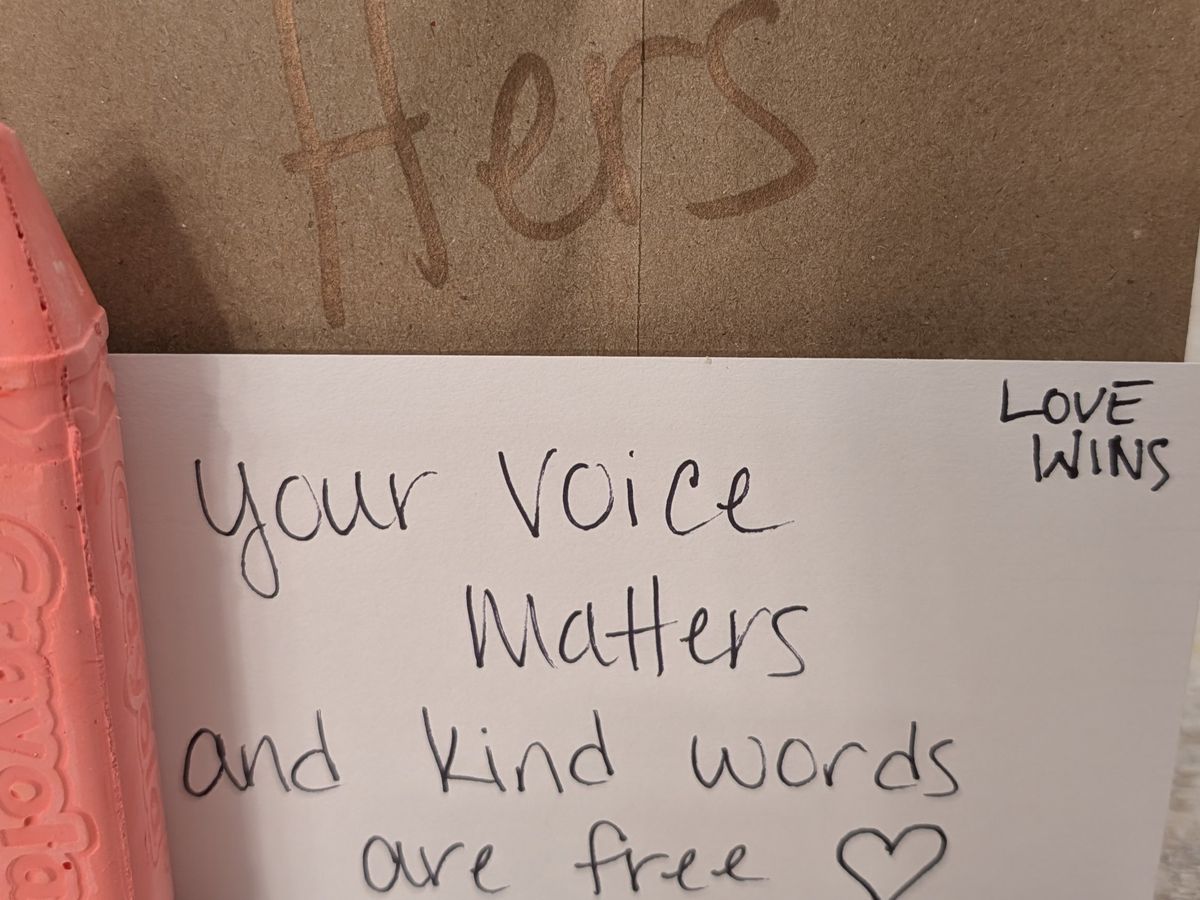 Hers
LOVE
WINS
your voice
Matters
and kind words
are free ♡
Crayola